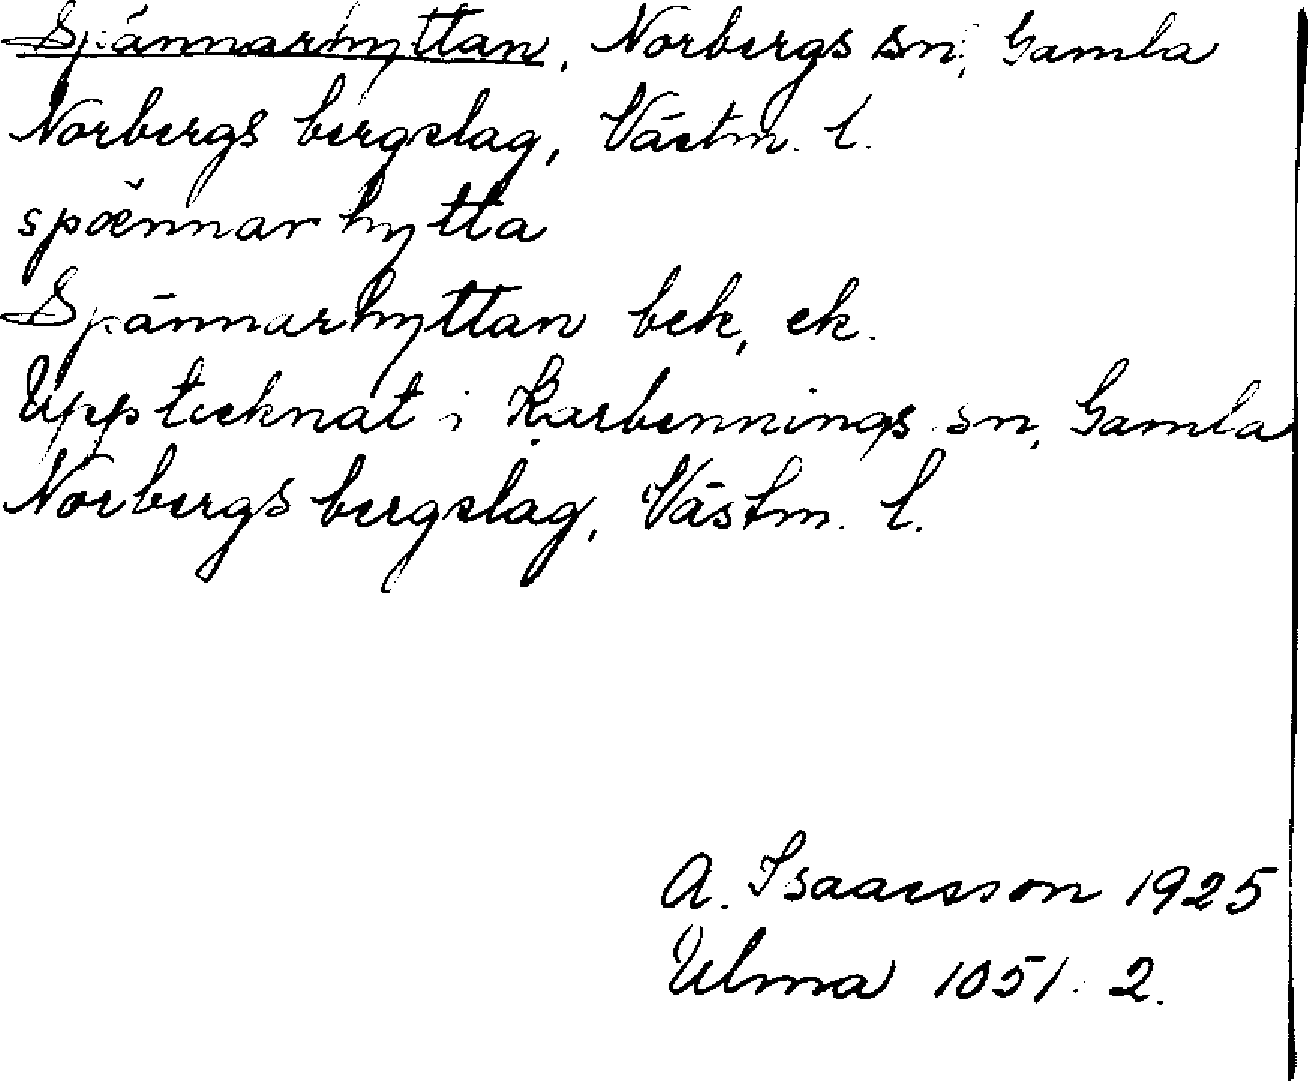 Spännarhyttan, Norbergs sn, Gamla
Norbergs bergslag, Västm. l.
spænnar hytta
Spännarhyttan bek, ek.
Upptecknat i Karbennings sn, Gamla
Norbergs bergslag, Västm. l.
A. Isaacsson 1925
Ulma 1051. 2.